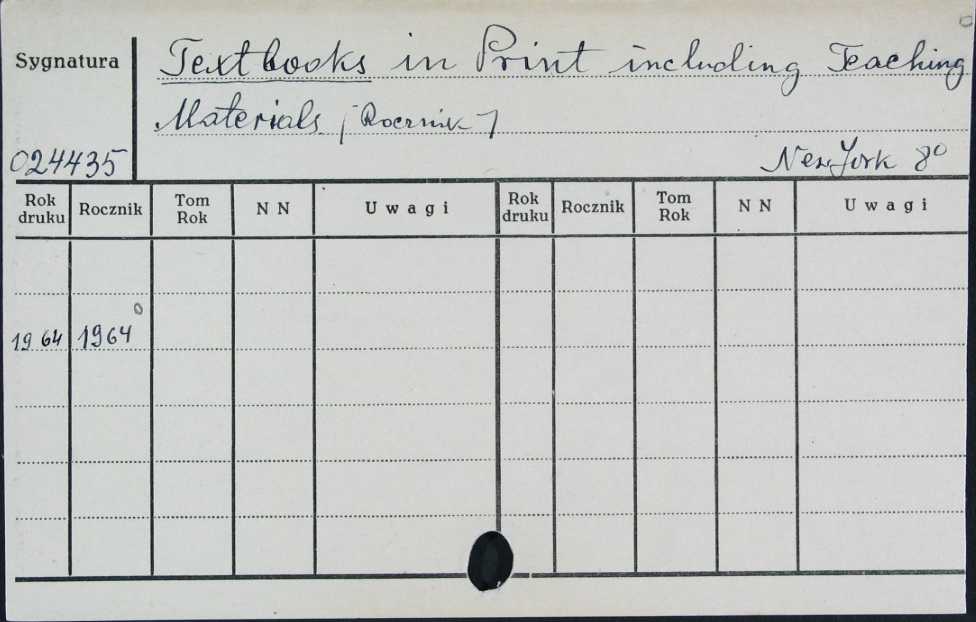 Sygnatura Textbooks in Print including Teaching
Materials [Rocznik]
024435 New York 8°
Rok druku Rocznik Tom Rok N N Uwagi Rok druku Rocznik Tom Rok N N Uwagi
1964 1964